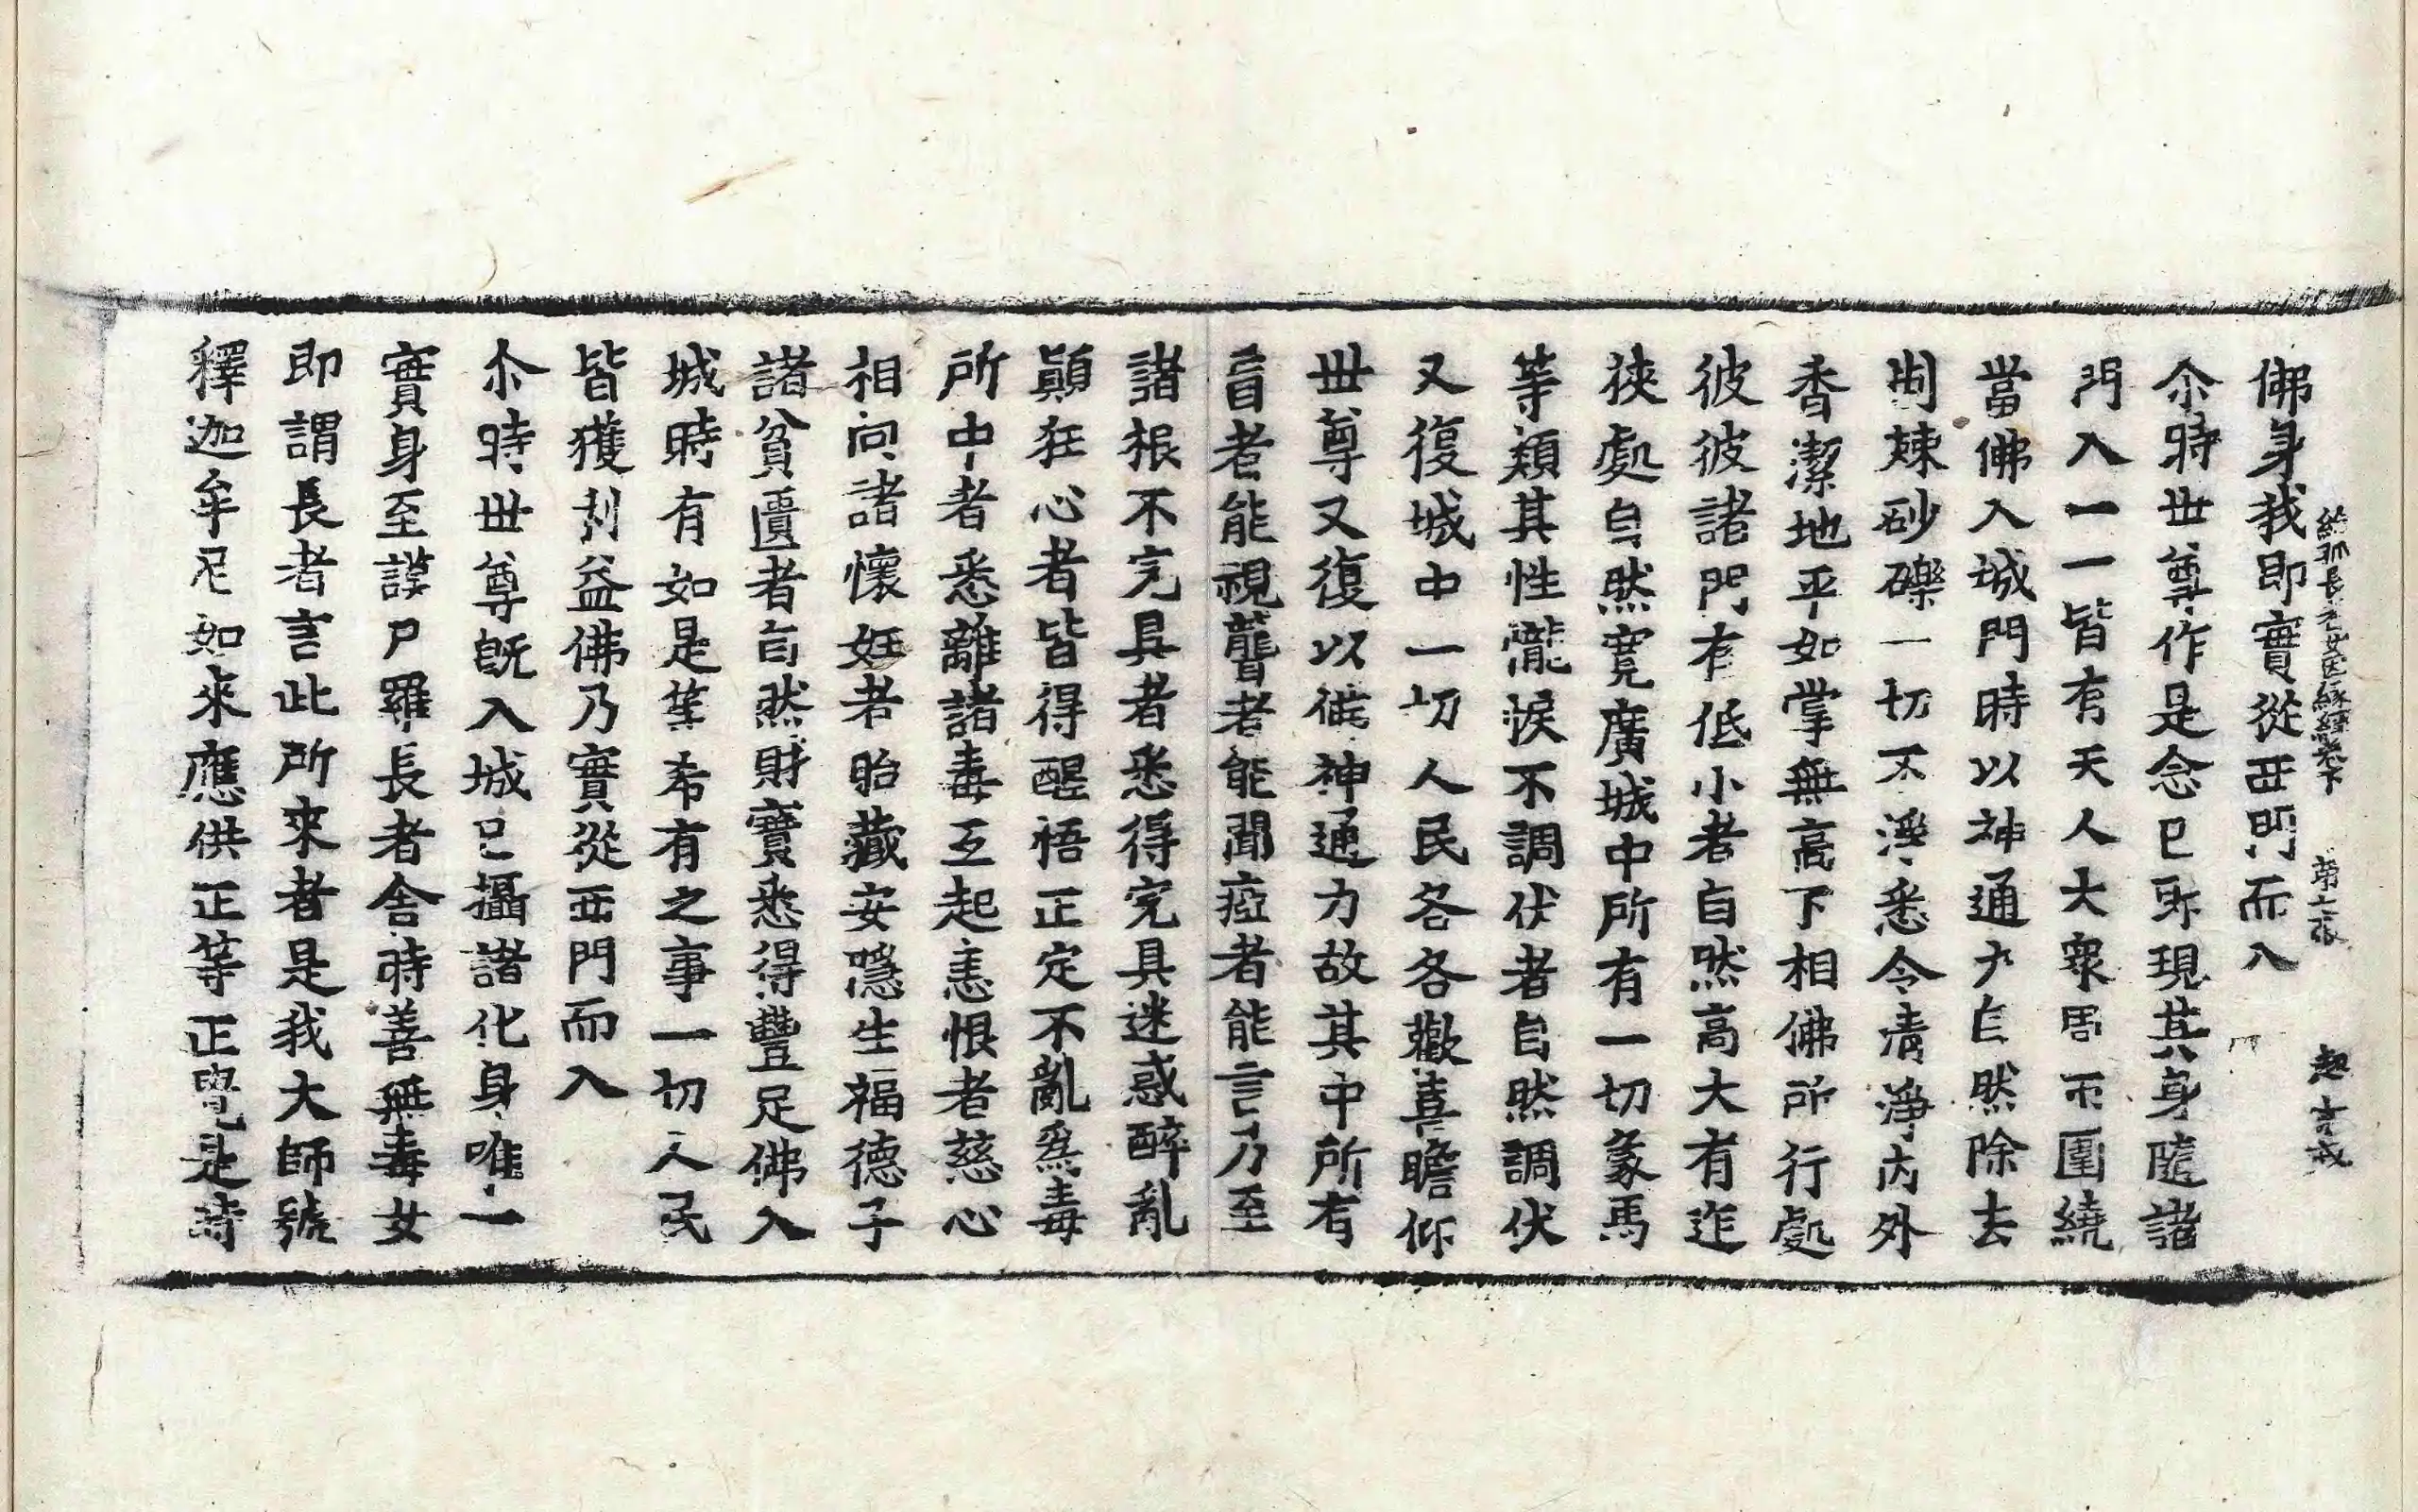 給孤長者女因緣經卷下 第二張 起字㦯
佛身我即實從西門而入
尒時世尊作是念已即現其身隨諸
門入一一皆有天人大衆周帀圍繞
當佛入城門時以神通力自然除去
荆棘砂礫一切不淨悉令清淨内外
香潔地平如掌無高下相佛所行處
彼彼諸門有低小者自然高大有迮
狹處自然寬廣城中所有一切象馬
等類其性㦕悷不調伏者自然調伏
又復城中一切人民各各歡喜瞻仰
世尊又復以彼神通力故其中所有
盲者能視聾者能聞瘂者能言乃至
諸根不完具者悉得完具迷惑醉亂
顚狂心者皆得醒悟正定不亂爲毒
所中者悉離諸毒互起恚恨者慈心
相向諸懷妊者胎藏安隱生福德子
諸貧匱者自然財寶悉得豐足佛入
城時有如是等希有之事一切人民
皆獲利益佛乃實從西門而入
尒時世尊旣入城已攝諸化身唯一
實身至謨尸羅長者舍時善無毒女
即謂長者言此所來者是我大師號
釋迦牟尼如來應供正等正覺是時